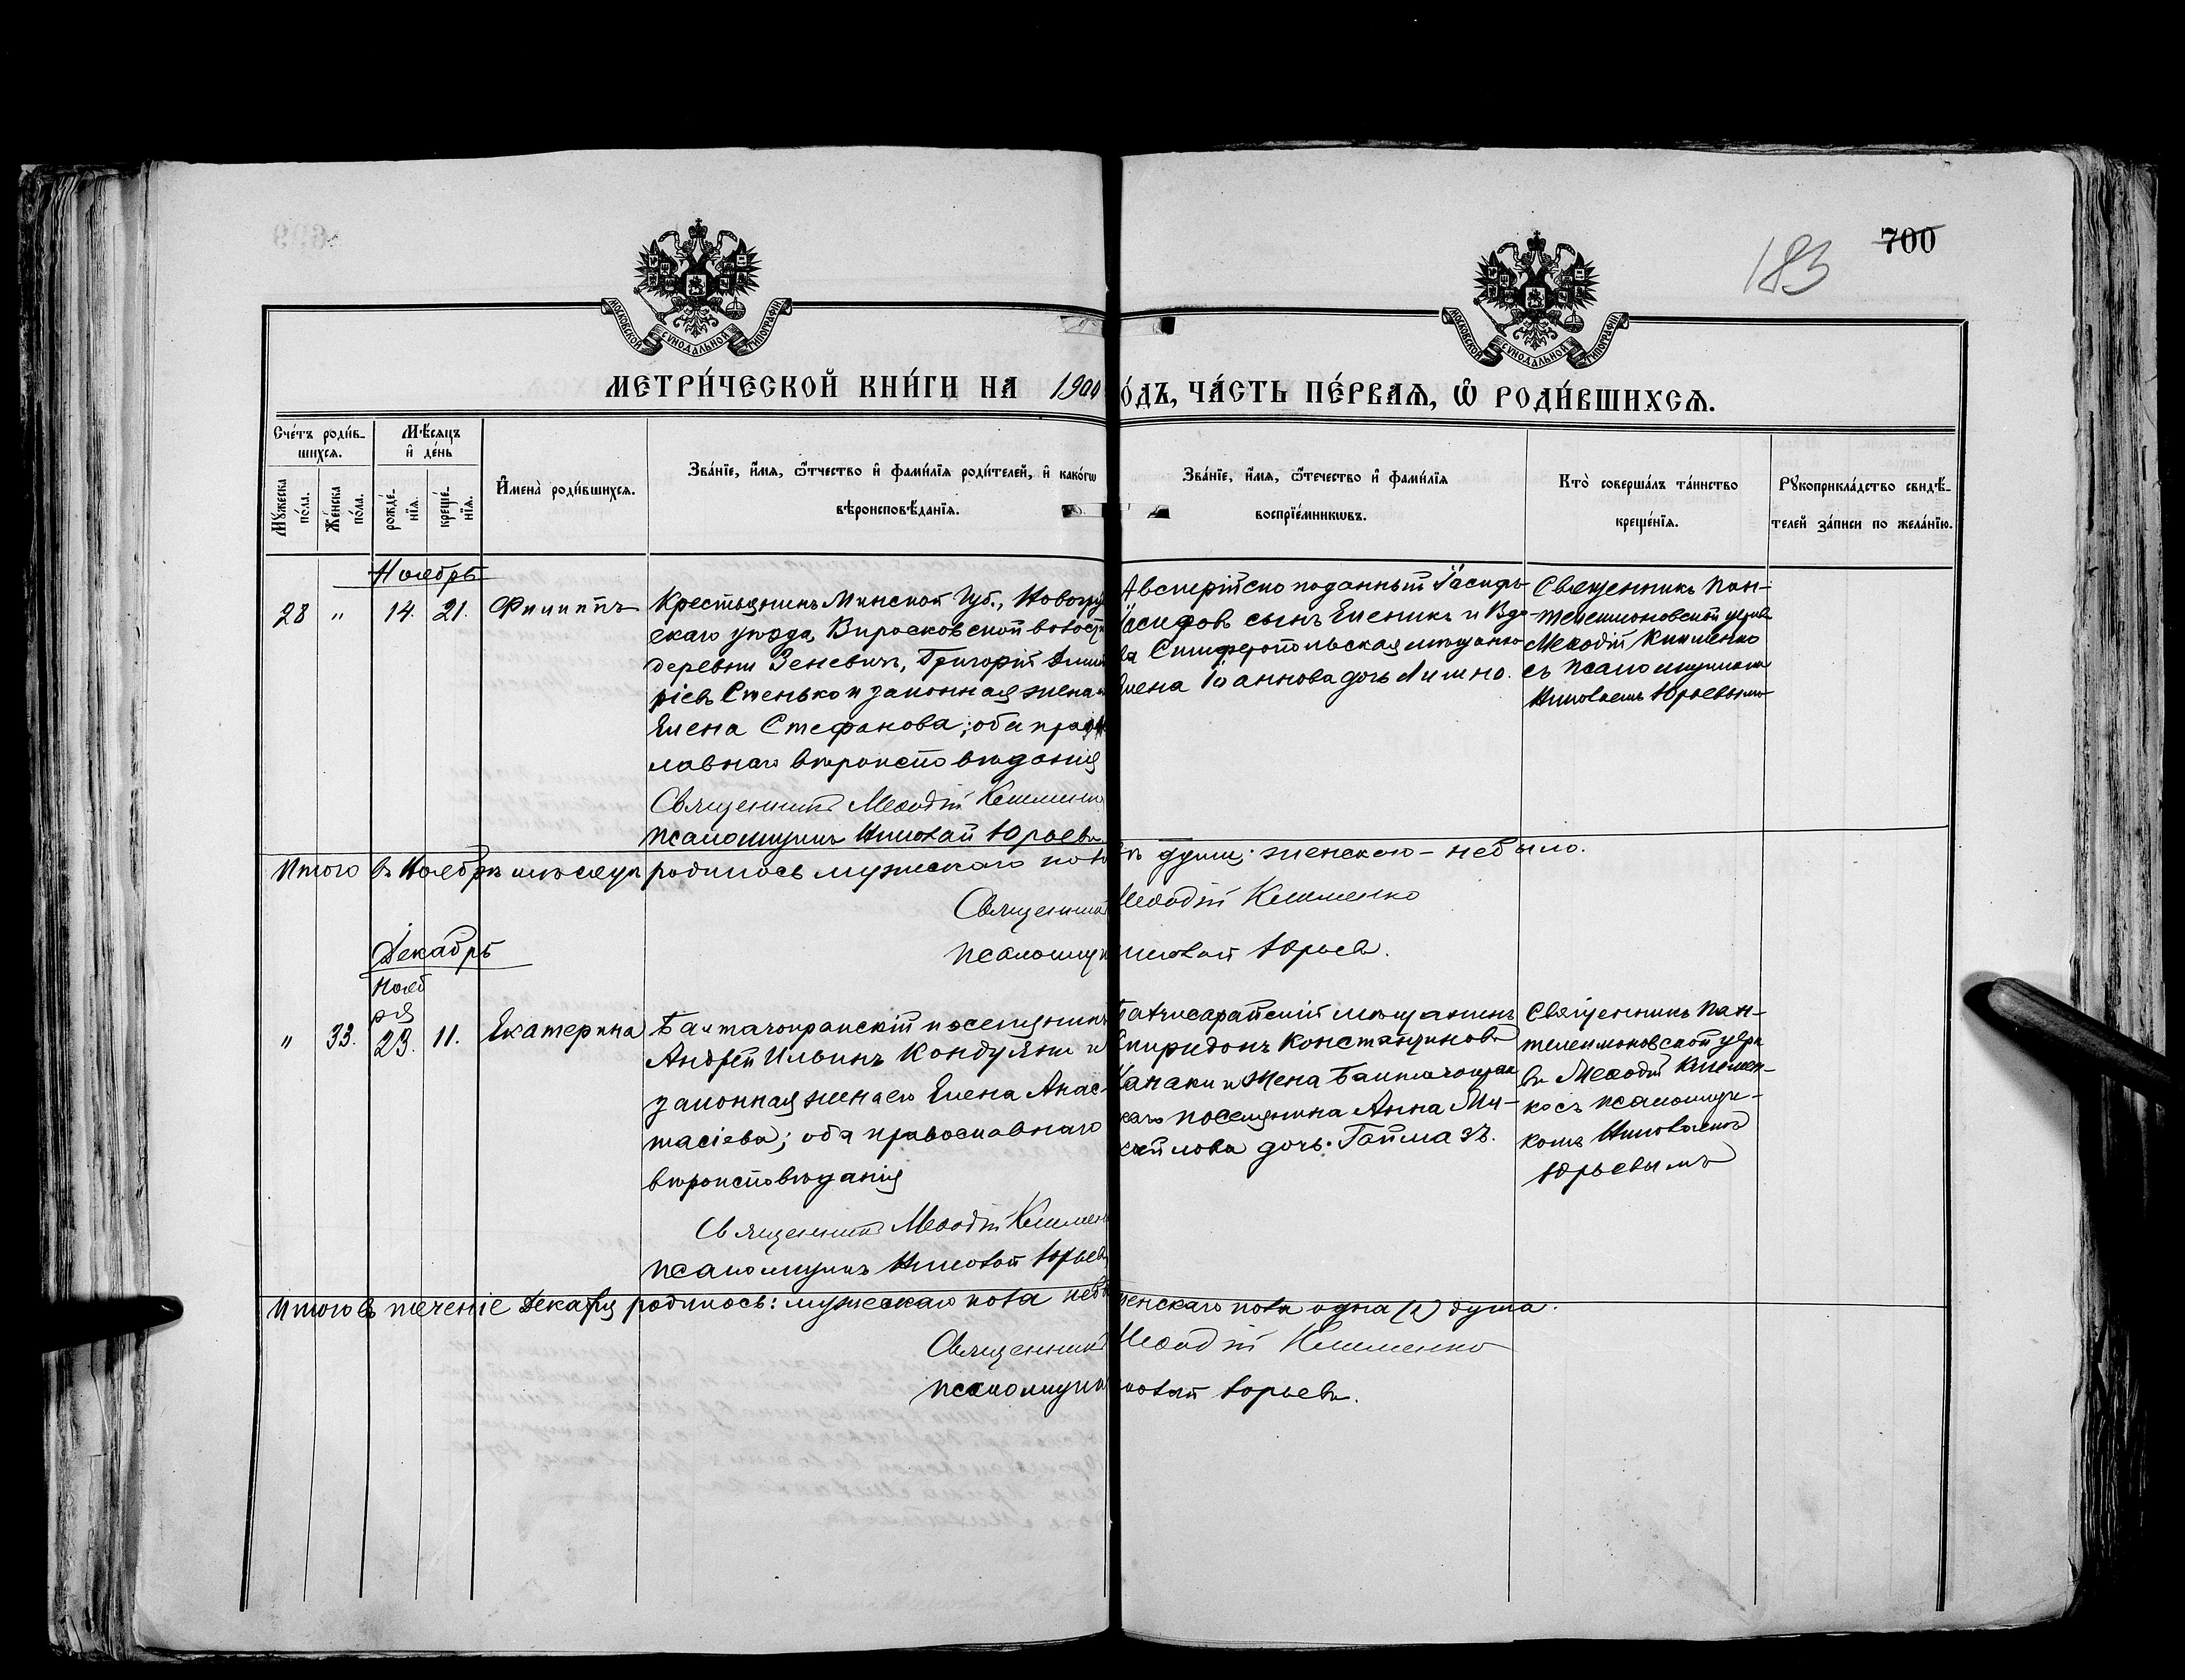 700
183
МОСКОВСКОЙ СѴНОДАЛЬНОЙ ТИПОГРАФІИ
МОСКОВСКОЙ СѴНОДАЛЬНОЙ ТИПОГРАФІИ
МЕТРИ́ЧЕСКОЙ КНИ́ГИ НА 1900
О́ДЪ, ЧА́СТЬ ПЕ́РВАѦ, Ѡ҆ РОДИ́ВШИХСѦ.
Сче́тъ роди́в-
шихсѧ.
Мѣ́сѧцъ
и҆ де́нь
Мꙋ́жеска
по́ла.
Же́нска
по́ла.
рожде́-
нїѧ.
креще́-
нїѧ.
И҆мена̀ роди́вшихсѧ.
Зва́нїе, и҆́мѧ, ѻ҆́тчество и҆ фами́лїѧ роди́телей, и҆ како́гѡ
вѣроисповѣ́данїѧ.
Зва́нїе, и҆́мѧ, ѻ҆́течество и҆ фами́лїѧ
воспрїе́мникѡвъ.
Кто̀ соверша́лъ та́инство
креще́нїѧ.
Рꙋкоприкла́дство свидѣ́-
телей за́писи по жела́нїю.
Ноябрь
28 " 14. 21. Филиппъ
Крестьянинъ Минской Губ., Новогру
скаго уѣзда,
деревни Зеневичъ, Григорій Дмит
ріевъ Стенько и законная жена
Елена Стефанова; оба пра
лавнаго вѣроисповѣданія
Священникъ Меѳодій Клименко
псаломщикъ Николай Юрьевъ
Австрійско поданный Іосифъ
осифовъ сынъ Еленикъ и Вдо-
ва Симферопольская мѣщанка
лена Іоаннова дочь
Священникъ Пан-
телеимоновской церкв
Меѳодій Клименко
съ псаломщикомъ
Николаемъ Юрьевымъ
Итого въ Ноябрѣ мѣсяцѣ родилось мужескаго пол
душ; женскаго – небыло.
Священникъ Меѳодій Клименко
псаломщикъ Николай Юрьевъ.
Декабрь
Нояб
ря
" 33. 23. 11. Екатерина
поселянинъ
Андрей Ильинъ и
законная жена его Елена Анас-
тасіева; оба православнаго
вѣроисповѣданія
Священникъ Меѳодій Клименко
псаломщикъ Николай Юрьевъ
Бахчисарайскій мѣщанинъ
Спиридонъ Константиновъ
и жена
каго поселянина Анна Ми-
хайлова дочь
Священникъ Пан-
телеимоновской церк
ви Меѳодій Климен-
ко съ псаломщи-
комъ Николаемъ
Юрьевымъ
Итого въ теченіе Декабря родилось: мужескаго пола неб
женскаго пола одна (1) душа.
Священникъ Меѳодій Клименко
псаломщикъ Николай Юрьевъ.